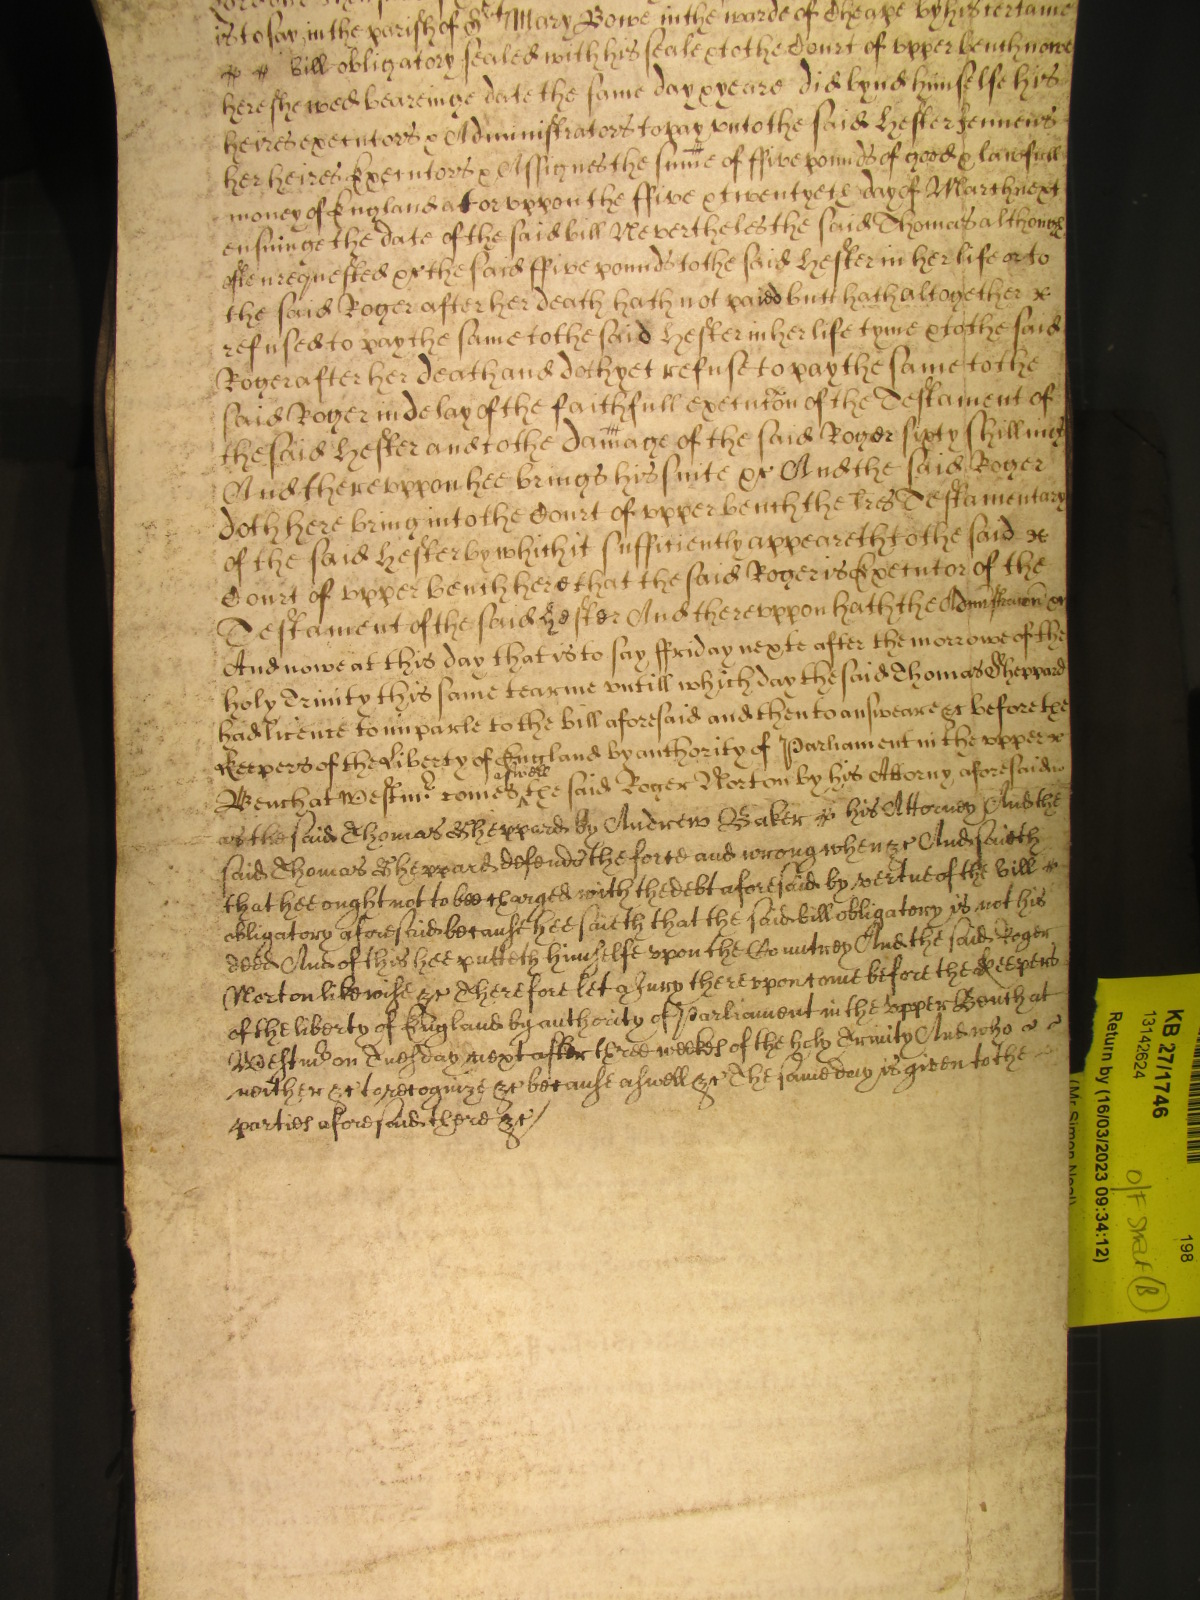 is to say in the parish of St Mary Bowe in the warde of Cheape by his certaine
bill obligatory sealed with his seale & to the Court of upper bench nowe
here shewed beareinge date the same day & yeare did bynd himselfe his
heires executors & Administrators to pay unto the said Hester Jennens
her heires Executors & Assignes the sume of ffive pounds of good & lawfull
money of England at or uppon the ffive & twentyeth day of March next
ensuinge the date of the said bill Nevertheles the said Thomas although
often requested &c the said ffive pounds to the said Hester in her life or to
the said Roger after her death hath not paid but hath altogether
refused to pay the same to the said Hester in her life tyme & to the said
Roger after her death and doth yet refuse to pay the same to the
said Roger in delay of the faithfull execucon of the Testament of
the said Hester and to the damage of the said Roger sixty shillings
And thereuppon hee brings his suite &c And the said Roger
doth here bring into the Court of upper bench the lres Testamentary
of the said Hester by which it sufficiently appeareth to the said
Court of upper bench here that the said Roger is Executor of the
Testament of the said Hester And thereuppon hath the Administracon &c
And nowe at this day that is to say ffriday nexte after the morrowe of the
holy Trinity this same tearme untill which day the said Thomas Sheppard
had licence to imparle to the bill aforesaid and then to answeare &c before the
Keepers of the Liberty of England by authority of Parliament in the upper
Bench at Westmr comes aswell the said Roger Norton by his Attorny aforesaid
as the said Thomas Sheppard by Andrew Baker his Attorney And the
said Thomas Sheppard defends the force and wrong when &c And saieth
that hee ought not to bee charged with the debt aforesaid by vertue of the bill
obligatory aforesaid because hee saieth that the said bill obligatory is not his
deed And of this hee putteth himselfe upon the Countrey And the said Roger
Norton likewise &c Therefore let a Jury thereupon come before the Keepers
of the liberty of England by authority of Parliament in the upper Bench at
Westmr on Tuesday next after three weekes of the holy Trinity And who
neither &c to recognize &c because aswell &c The same day is given to the
parties aforesaid there &c/
KB 27/1746
13142624
198
O/F Strat B
Return by (16/03/2023 09:34:12)
(Mr Simon Neal)